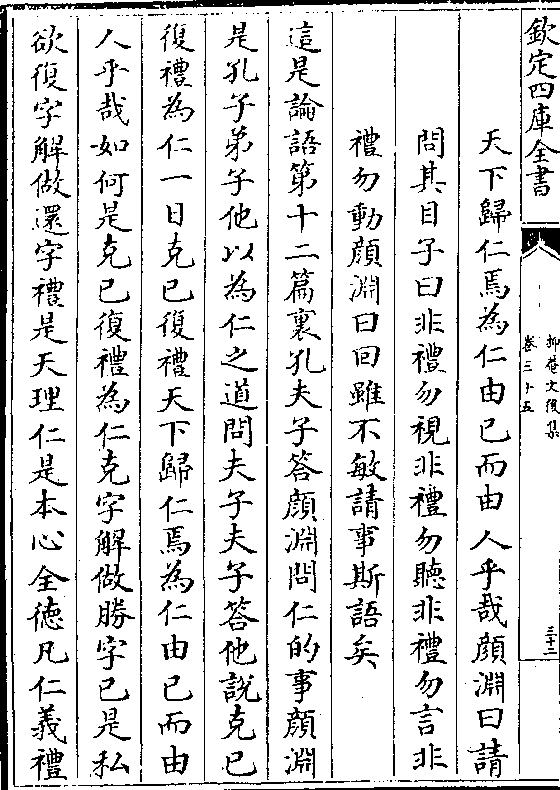 欽定四庫全書
抑菴文後集
卷三十五
三十二
天下歸仁焉為仁由已而由人乎哉顔淵曰請
問其目子曰非禮勿視非禮勿聽非禮勿言非
禮勿動顔淵曰回雖不敏請事斯語矣
這是論語第十二篇裏孔夫子答顔淵問仁的事顔淵
是孔子弟子他以為仁之道問夫子夫子答他說克已
復禮為仁一日克已復禮天下歸仁焉為仁由已而由
人乎哉如何是克已復禮為仁克字解做勝字已是私
欲復字解做還字禮是天理仁是本心全徳凡仁義禮